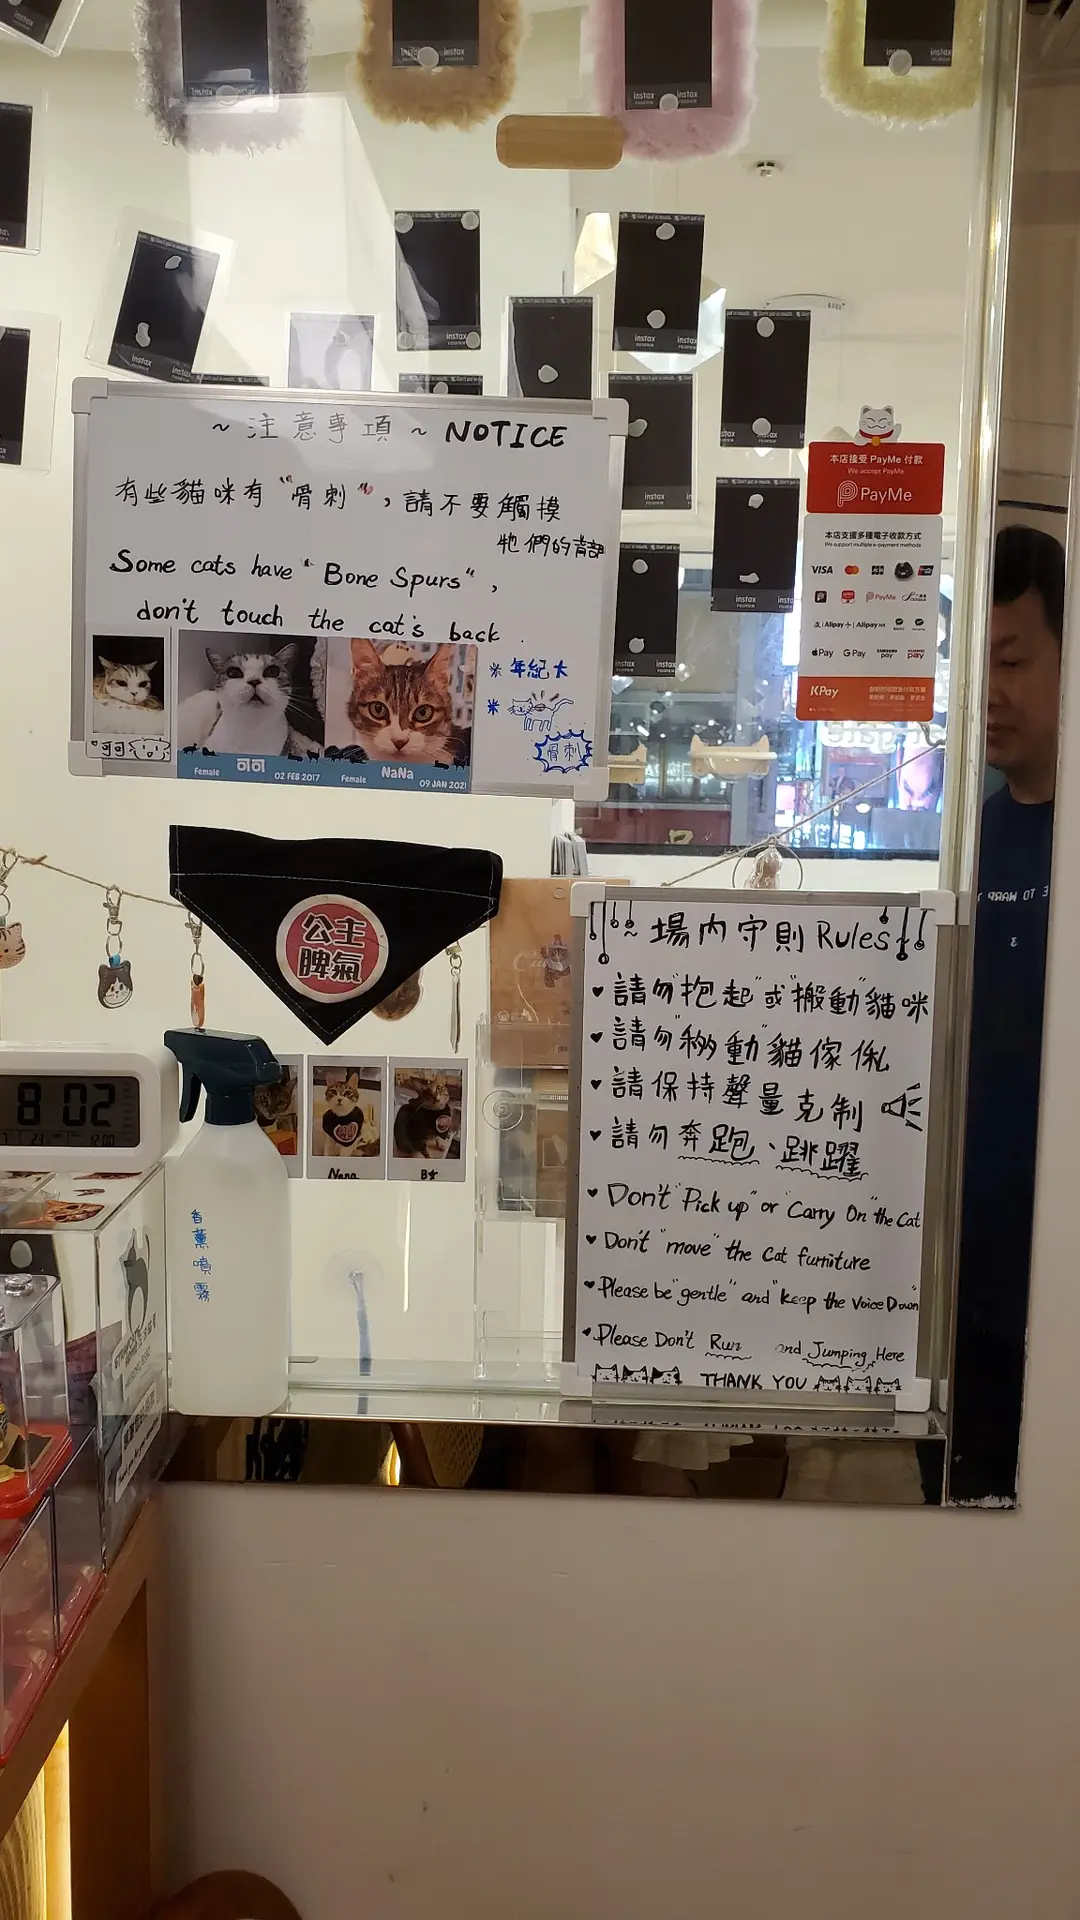 ~ 注意事項 ~ NOTICE
有些貓咪有“骨刺”，請不要觸摸
牠們的背部
Some cats have “Bone Spurs”,
don't touch the cat's back.
可可
Female 可可 02 FEB 2017
Female NaNa 09 JAN 2021
※ 年紀大
※
骨刺
本店接受 PayMe 付款
We accept PayMe
PayMe
本店支援多種電子收款方式
We support multiple e-payment methods
VISA
PayMe
Alipay Alipay HK
Pay G Pay SAMSUNG pay HUAWEI pay
KPay
公主
脾氣
8:02
Nana
B女
香薰噴霧
~ 場內守則 Rules ~
♥ 請勿“抱起”或“搬動”貓咪
♥ 請勿“移動”貓傢俬
♥ 請保持聲量克制
♥ 請勿奔跑、跳躍
♥ Don't “Pick up” or “Carry On” the Cat
♥ Don't “move” the Cat furniture
♥ Please be “gentle” and “keep the Voice Down”
♥ Please Don't Run and Jumping Here
THANK YOU
instax
instax
instax
instax
instax
instax